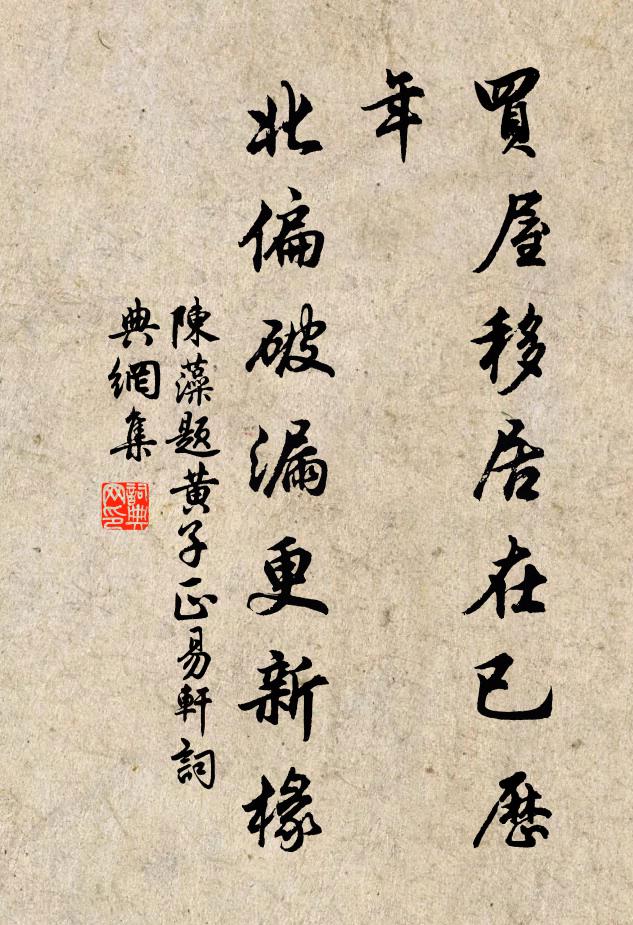 買屋移居在已歷
年
北偏破漏更新椽
陳藻題黃子正易軒詞
典網集
詞典
网印